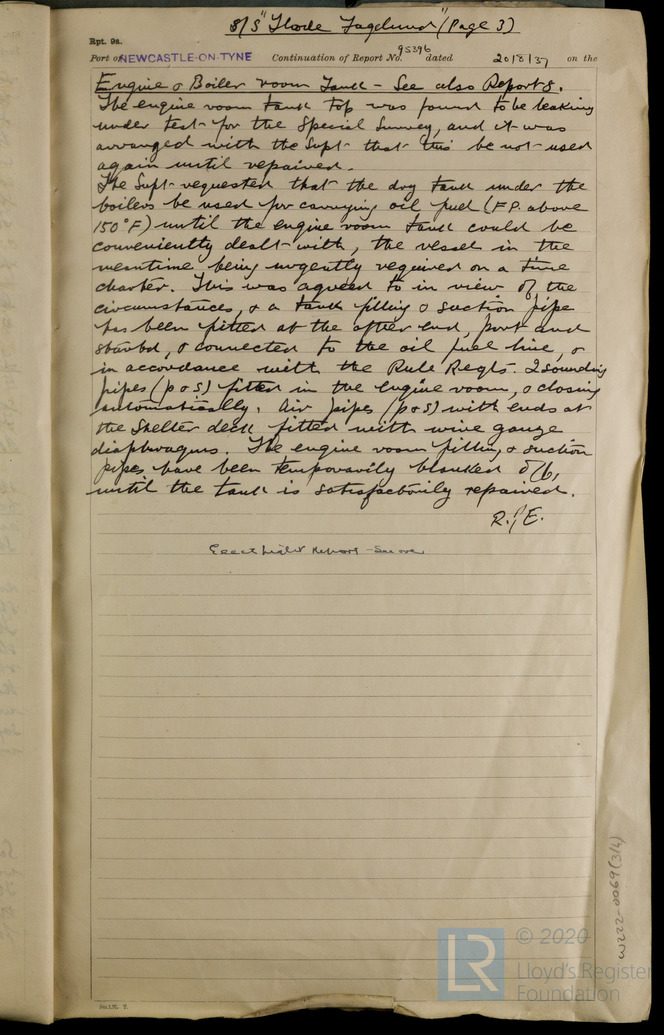 S/S "Thode Fagelund" (Page 3)
Rpt. 9a.
Port of NEWCASTLE-ON-TYNE Continuation of Report No. 95396 dated 20/8/37 on the
Engine & Boiler room Tank - See also Report 8.
The engine room tank top was found to be leaking
under test for the Special Survey, and it was
arranged with the Supt that this be not used
again until repaired.
The Supt requested that the dry tank under the
boilers be used for carrying oil fuel (F.P. above
150°F) until the engine room tank could be
conveniently dealt with, the vessel in the
meantime being urgently required on a time
charter. This was agreed to in view of the
circumstances, & a tank filling & suction pipe
has been fitted at the after end, port and
starbd, & connected to the oil fuel line, &
in accordance with the Rule Reqts. 2 sounding
pipes (p & s) fitted in the engine room, & closing
automatically. Air pipes (p & s) with ends at
the Shelter deck fitted with wire gauze
diaphragms. The engine room filling & suction
pipes have been temporarily blanked off,
until the tank is satisfactorily repaired.
R.J.E.
Report - See over
W222-0069(3/4)
LR
© 2020
Lloyd's Register
Foundation